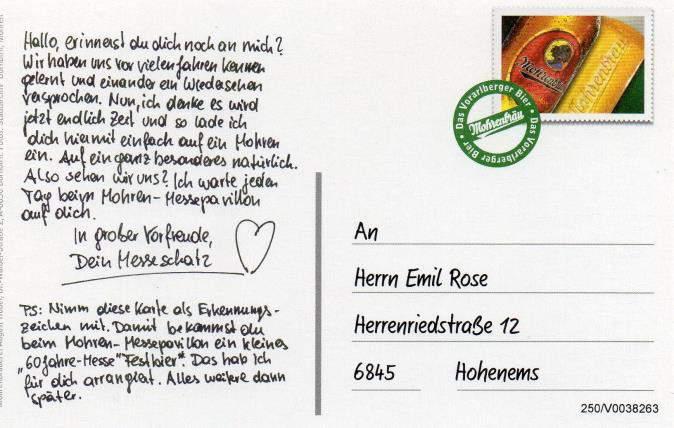 Hallo, erinnerst du dich noch an mich?
Wir haben uns vor vielen Jahren kennen
gelernt und einander ein Wiedersehen
versprochen. Nun, ich denke es wird
jetzt endlich Zeit und so lade ich
dich hiermit einfach auf ein Mohren
ein. Auf ein ganz besonderes natürlich.
Also sehen wir uns? Ich warte jeden
Tag beim Mohren-Messepavillon
auf dich.
In großer Vorfreude,
Dein Messeschatz
PS: Nimm diese Karte als Erkennungs-
zeichen mit. Damit bekommst du
beim Mohren-Messepavillon ein kleines
„60 Jahre-Messe“ Festbier“. Das hab ich
für dich arrangiert. Alles weitere dann
später.
Mohrenbräu
Das Vorarlberger Bier • Das Vorarlberger Bier •
Mohrenbräu
An
Herrn Emil Rose
Herrenriedstraße 12
6845 Hohenems
250/V0038263